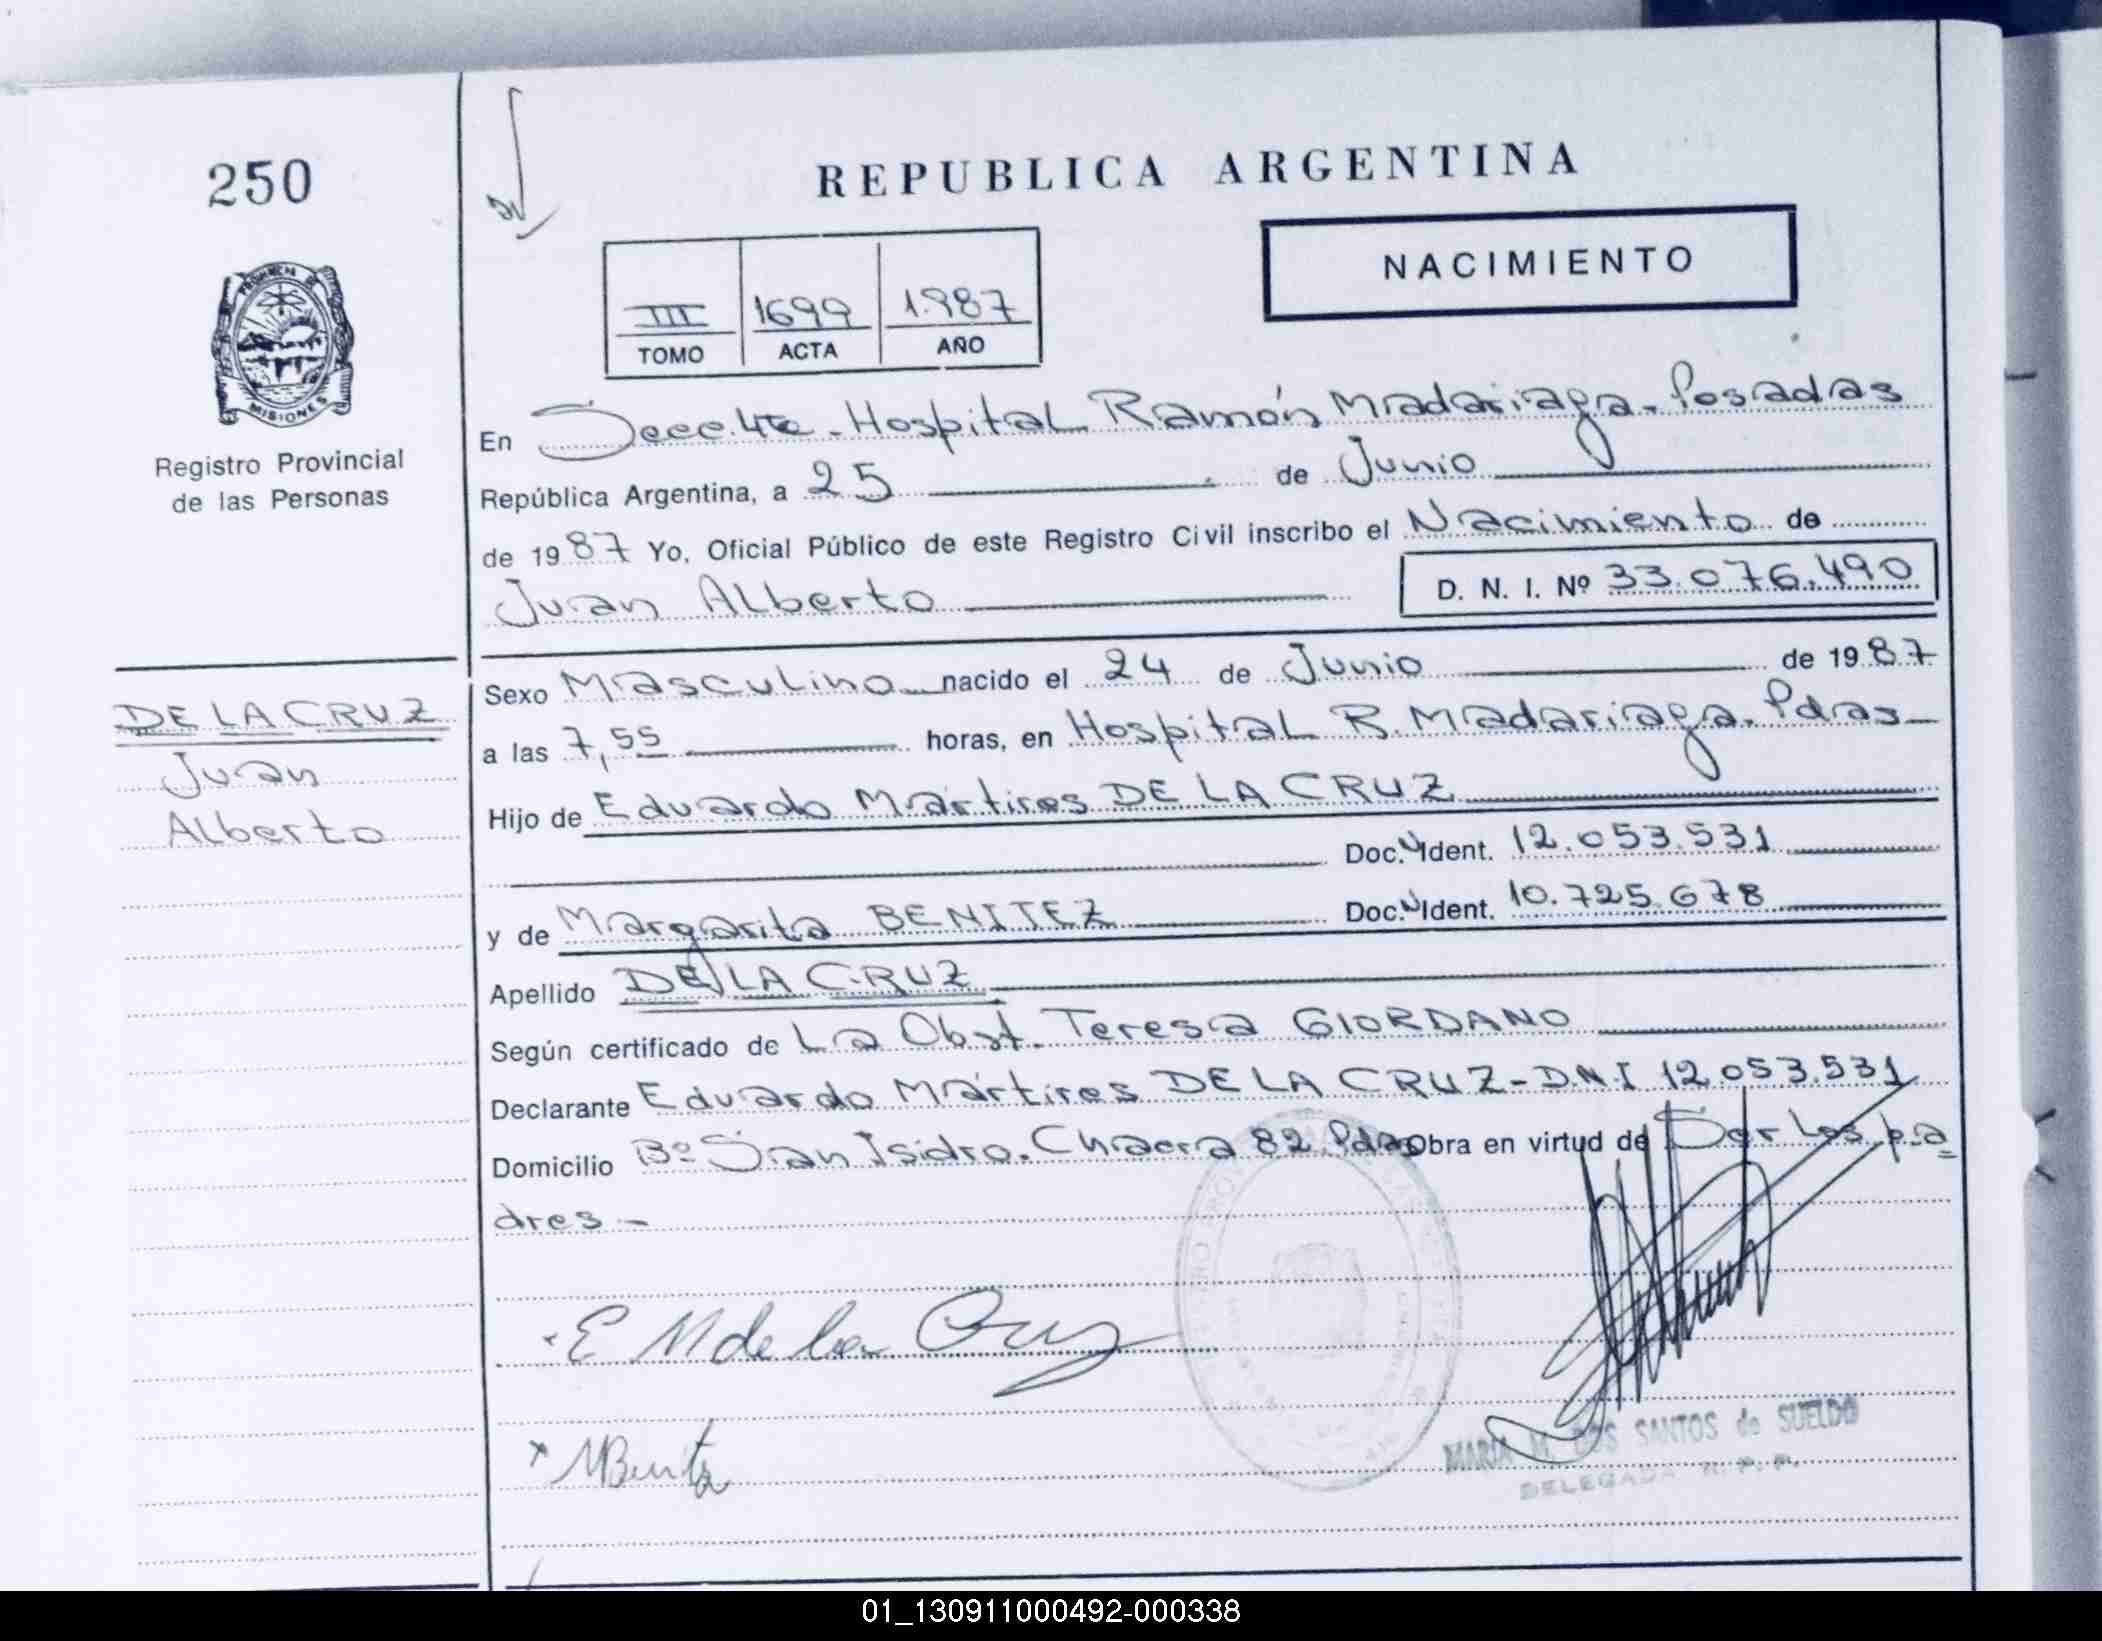 250
REPUBLICA ARGENTINA
NACIMIENTO
III 1699 1.987
TOMO ACTA AÑO
MISIONES
Registro Provincial
de las Personas
En Secc. 4ta - Hospital Ramón Madariaga - Posadas
República Argentina, a 25 de Junio
de 1987 Yo, Oficial Público de este Registro Civil inscribo el Nacimiento de
Juan Alberto D. N. I. Nº 33.076.490
DE LA CRUZ
Juan
Alberto
Sexo Masculino nacido el 24 de Junio de 1987
a las 7,55 horas, en Hospital R. Madariaga. Pdas
Hijo de Eduardo Mártires DE LA CRUZ
Doc. Ident. 12.053.531
y de Margarita BENITEZ Doc. Ident. 10.725.678
Apellido DE LA CRUZ
Según certificado de La Obst. Teresa GIORDANO
Declarante Eduardo Mártires DE LA CRUZ - D.N.I 12.053.531
Domicilio Bº San Isidro. Chacra 82. Pdas Obra en virtud de Ser Los pa
dres -
E M de la Cruz
MBenitez
MARIA M. DOS SANTOS de SUELDO
DELEGADA R. P. P.
01_130911000492-000338